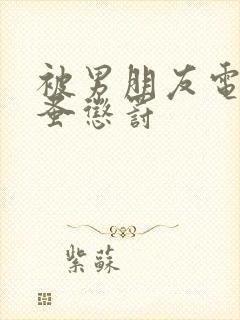 被男朋友電
蚤懲罰
紫蘇